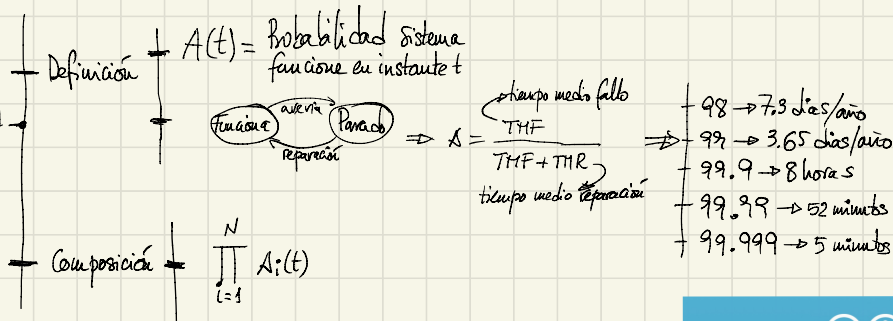 Definición
A(t) = Probabilidad sistema
funcione en instante t
Funciona
avería
Parado
reparación
⇒ A = TMF / TMF + TMR
tiempo medio fallo
tiempo medio reparación
⇒
98 → 7.3 días/año
99 → 3.65 días/año
99.9 → 8 horas
99.99 → 52 minutos
99.999 → 5 minutos
Composición
N
∏ Ai(t)
i=1